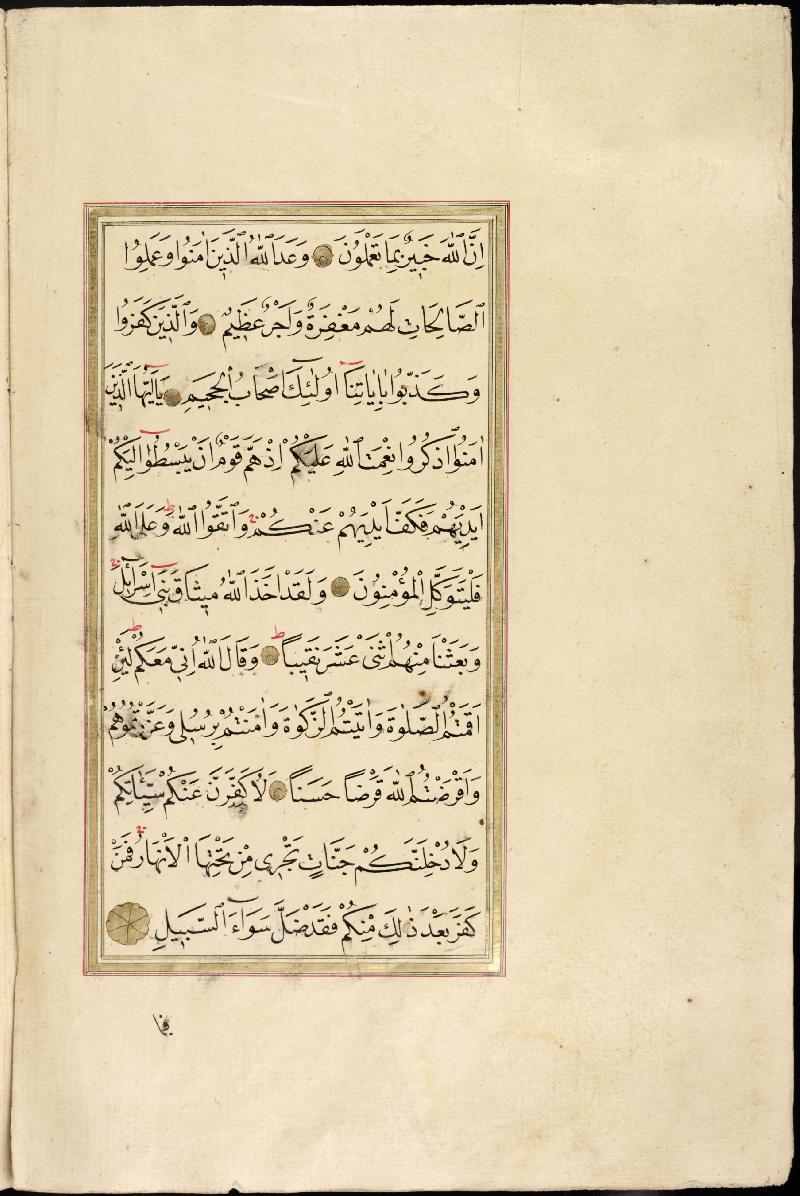 اِنَّ اللّٰهَ خَبِيرٌ بِمَا تَعْمَلُونَ وَعَدَ اللّٰهُ الَّذِينَ اٰمَنُوا وَعَمِلُوا
الصَّالِحَاتِ لَهُمْ مَغْفِرَةٌ وَاَجْرٌ عَظِيمٌ وَالَّذِينَ كَفَرُوا
وَكَذَّبُوا بِاٰيَاتِنَا اُولٰئِكَ اَصْحَابُ الْجَحِيمِ يَااَيُّهَا الَّذِينَ
اٰمَنُوا اذْكُرُوا نِعْمَتَ اللّٰهِ عَلَيْكُمْ اِذْ هَمَّ قَوْمٌ اَنْ يَبْسُطُوا اِلَيْكُمْ
اَيْدِيَهُمْ فَكَفَّ اَيْدِيَهُمْ عَنْكُمْ ج وَاتَّقُوا اللّٰهَ ط وَعَلَى اللّٰهِ
فَلْيَتَوَكَّلِ الْمُؤْمِنُونَ وَلَقَدْ اَخَذَ اللّٰهُ مِيثَاقَ بَنِى اِسْرَائِلَ ج
وَبَعَثْنَا مِنْهُمُ اثْنَىْ عَشَرَ نَقِيبًا ط وَقَالَ اللّٰهُ اِنِّى مَعَكُمْ ط لَئِنْ
اَقَمْتُمُ الصَّلٰوةَ وَاٰتَيْتُمُ الزَّكٰوةَ وَاٰمَنْتُمْ بِرُسُلِى وَعَزَّرْتُمُوهُمْ
وَاَقْرَضْتُمُ اللّٰهَ قَرْضًا حَسَنًا لَاُكَفِّرَنَّ عَنْكُمْ سَيِّاٰتِكُمْ
وَلَاُدْخِلَنَّكُمْ جَنَّاتٍ تَجْرِى مِنْ تَحْتِهَا الْاَنْهَارُ ج فَمَنْ
كَفَرَ بَعْدَ ذٰلِكَ مِنْكُمْ فَقَدْ ضَلَّ سَوَاءَ السَّبِيلِ
فبما